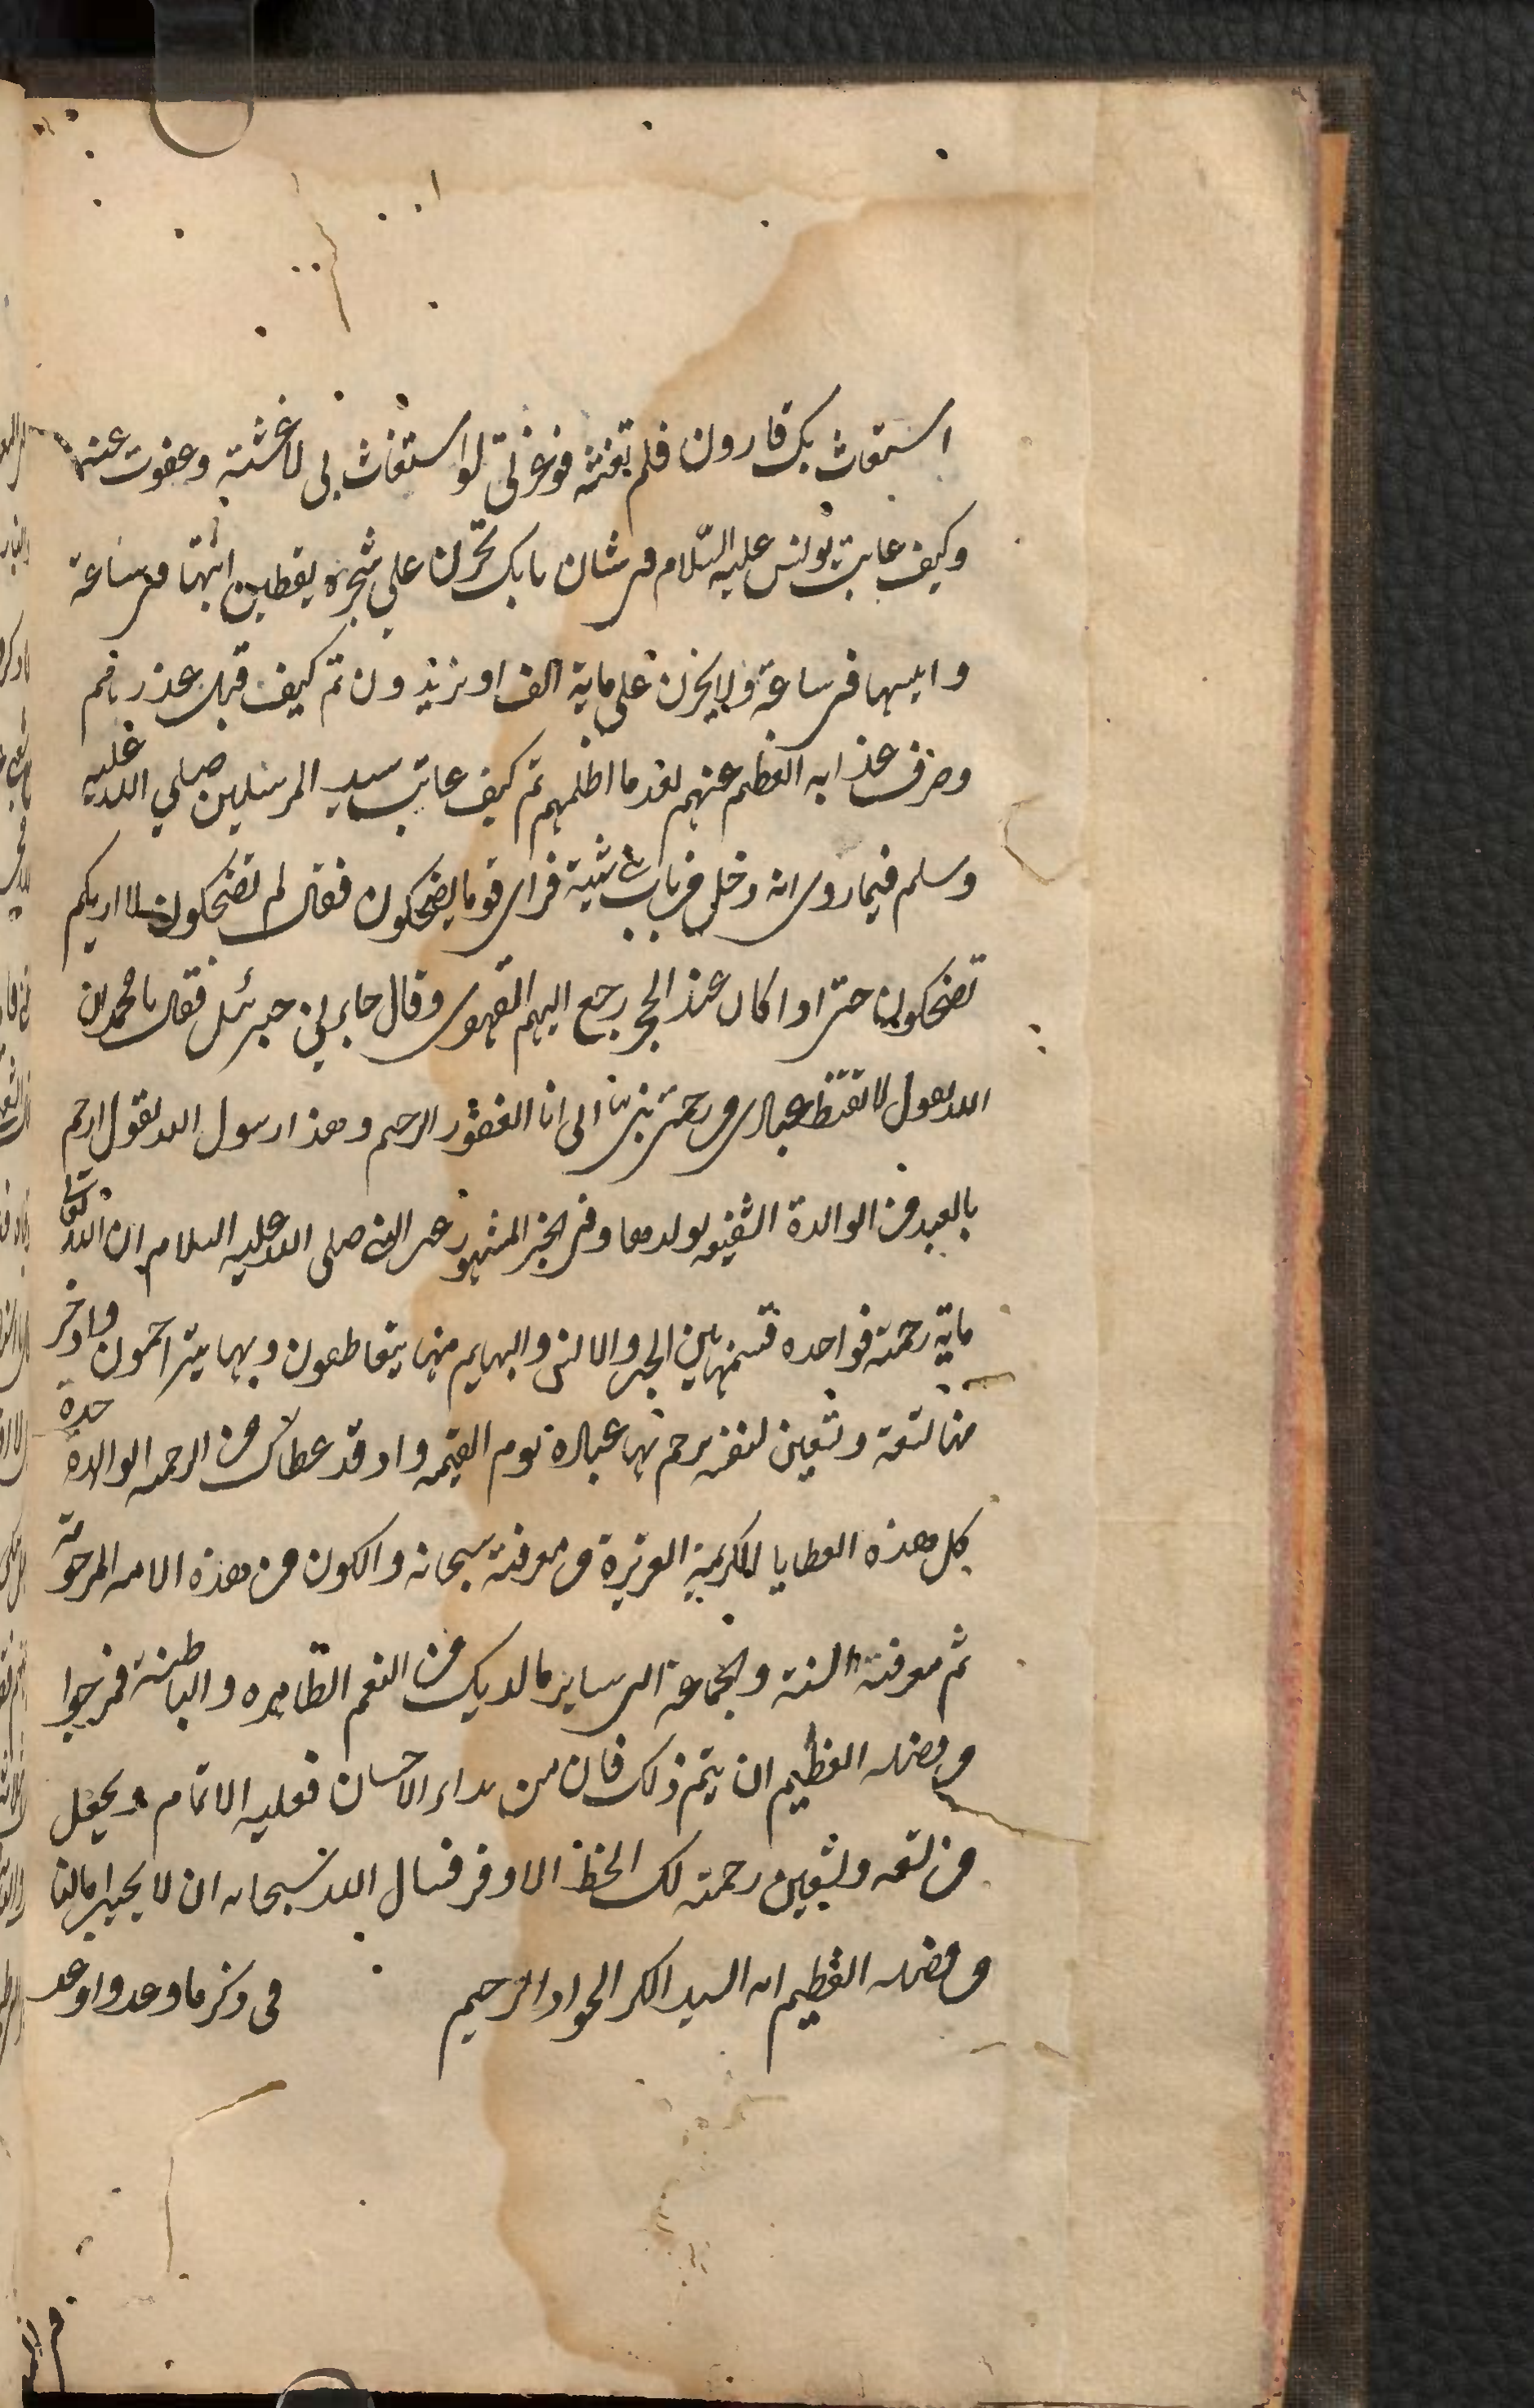 استغاث بك قارون فلم تغثه فوعزتي لو استغاث بي لاغثته وعفوت عنه
وكيف عاتب يونس عليه السلام في شان بابك تحزن علي شجرة يقطين انبتها في ساعة
وايبسها في ساعة ولا تحزن علي ماية الف او يزيدون ثم كيف قبل عذرهم
وصرف عذابه العظيم عنهم بعد ما اظلهم ثم كيف عاتب سيد المرسلين صلي الله عليه
وسلم فيما روي انه دخل من باب شيبة فراي قوما يضحكون فقال لم تضحكون لا اريكم
تضحكون حتي اذا كان عند الحجر رجع اليهم القهقري وقال جاءني جبرئيل فقال يا محمد ان
الله يقول لا تقنط عبادي من رحمتي نبئ عبادي اني انا الغفور الرحيم وهذا رسول الله يقول ارحم
بالعبد من الوالدة الشفيقة لولدها وفي الخبر المشهور عن النبي صلي الله عليه السلام ان الله تعالي
ماية رحمة فواحده قسمها بين الجن والانس والبهايم فبها يتعاطفون وبها يتراحمون وادخر
منها تسعة وتسعين لنفسه يرحم بها عباده يوم القيمة واذ قد اعطاك من الرحمة الواحدة
كل هذه العطايا الكريمة العزيزة من معرفته سبحانه والكون من هذه الامة المرحومة
ثم معرفة السنة والجماعة الي ساير ما لديك من النعم الظاهره والباطنة فمرجوا
من فضله العظيم ان يتم ذلك فان من بداء الاحسان فعليه الاتمام ويجعل
من تسعه وتسعين رحمته لك الحظ الاوفر فنسال الله سبحانه ان لا يخيب امالنا
من فضله العظيم انه السيد الكريم الجواد الرحيم في ذكر ما وعد واوعد